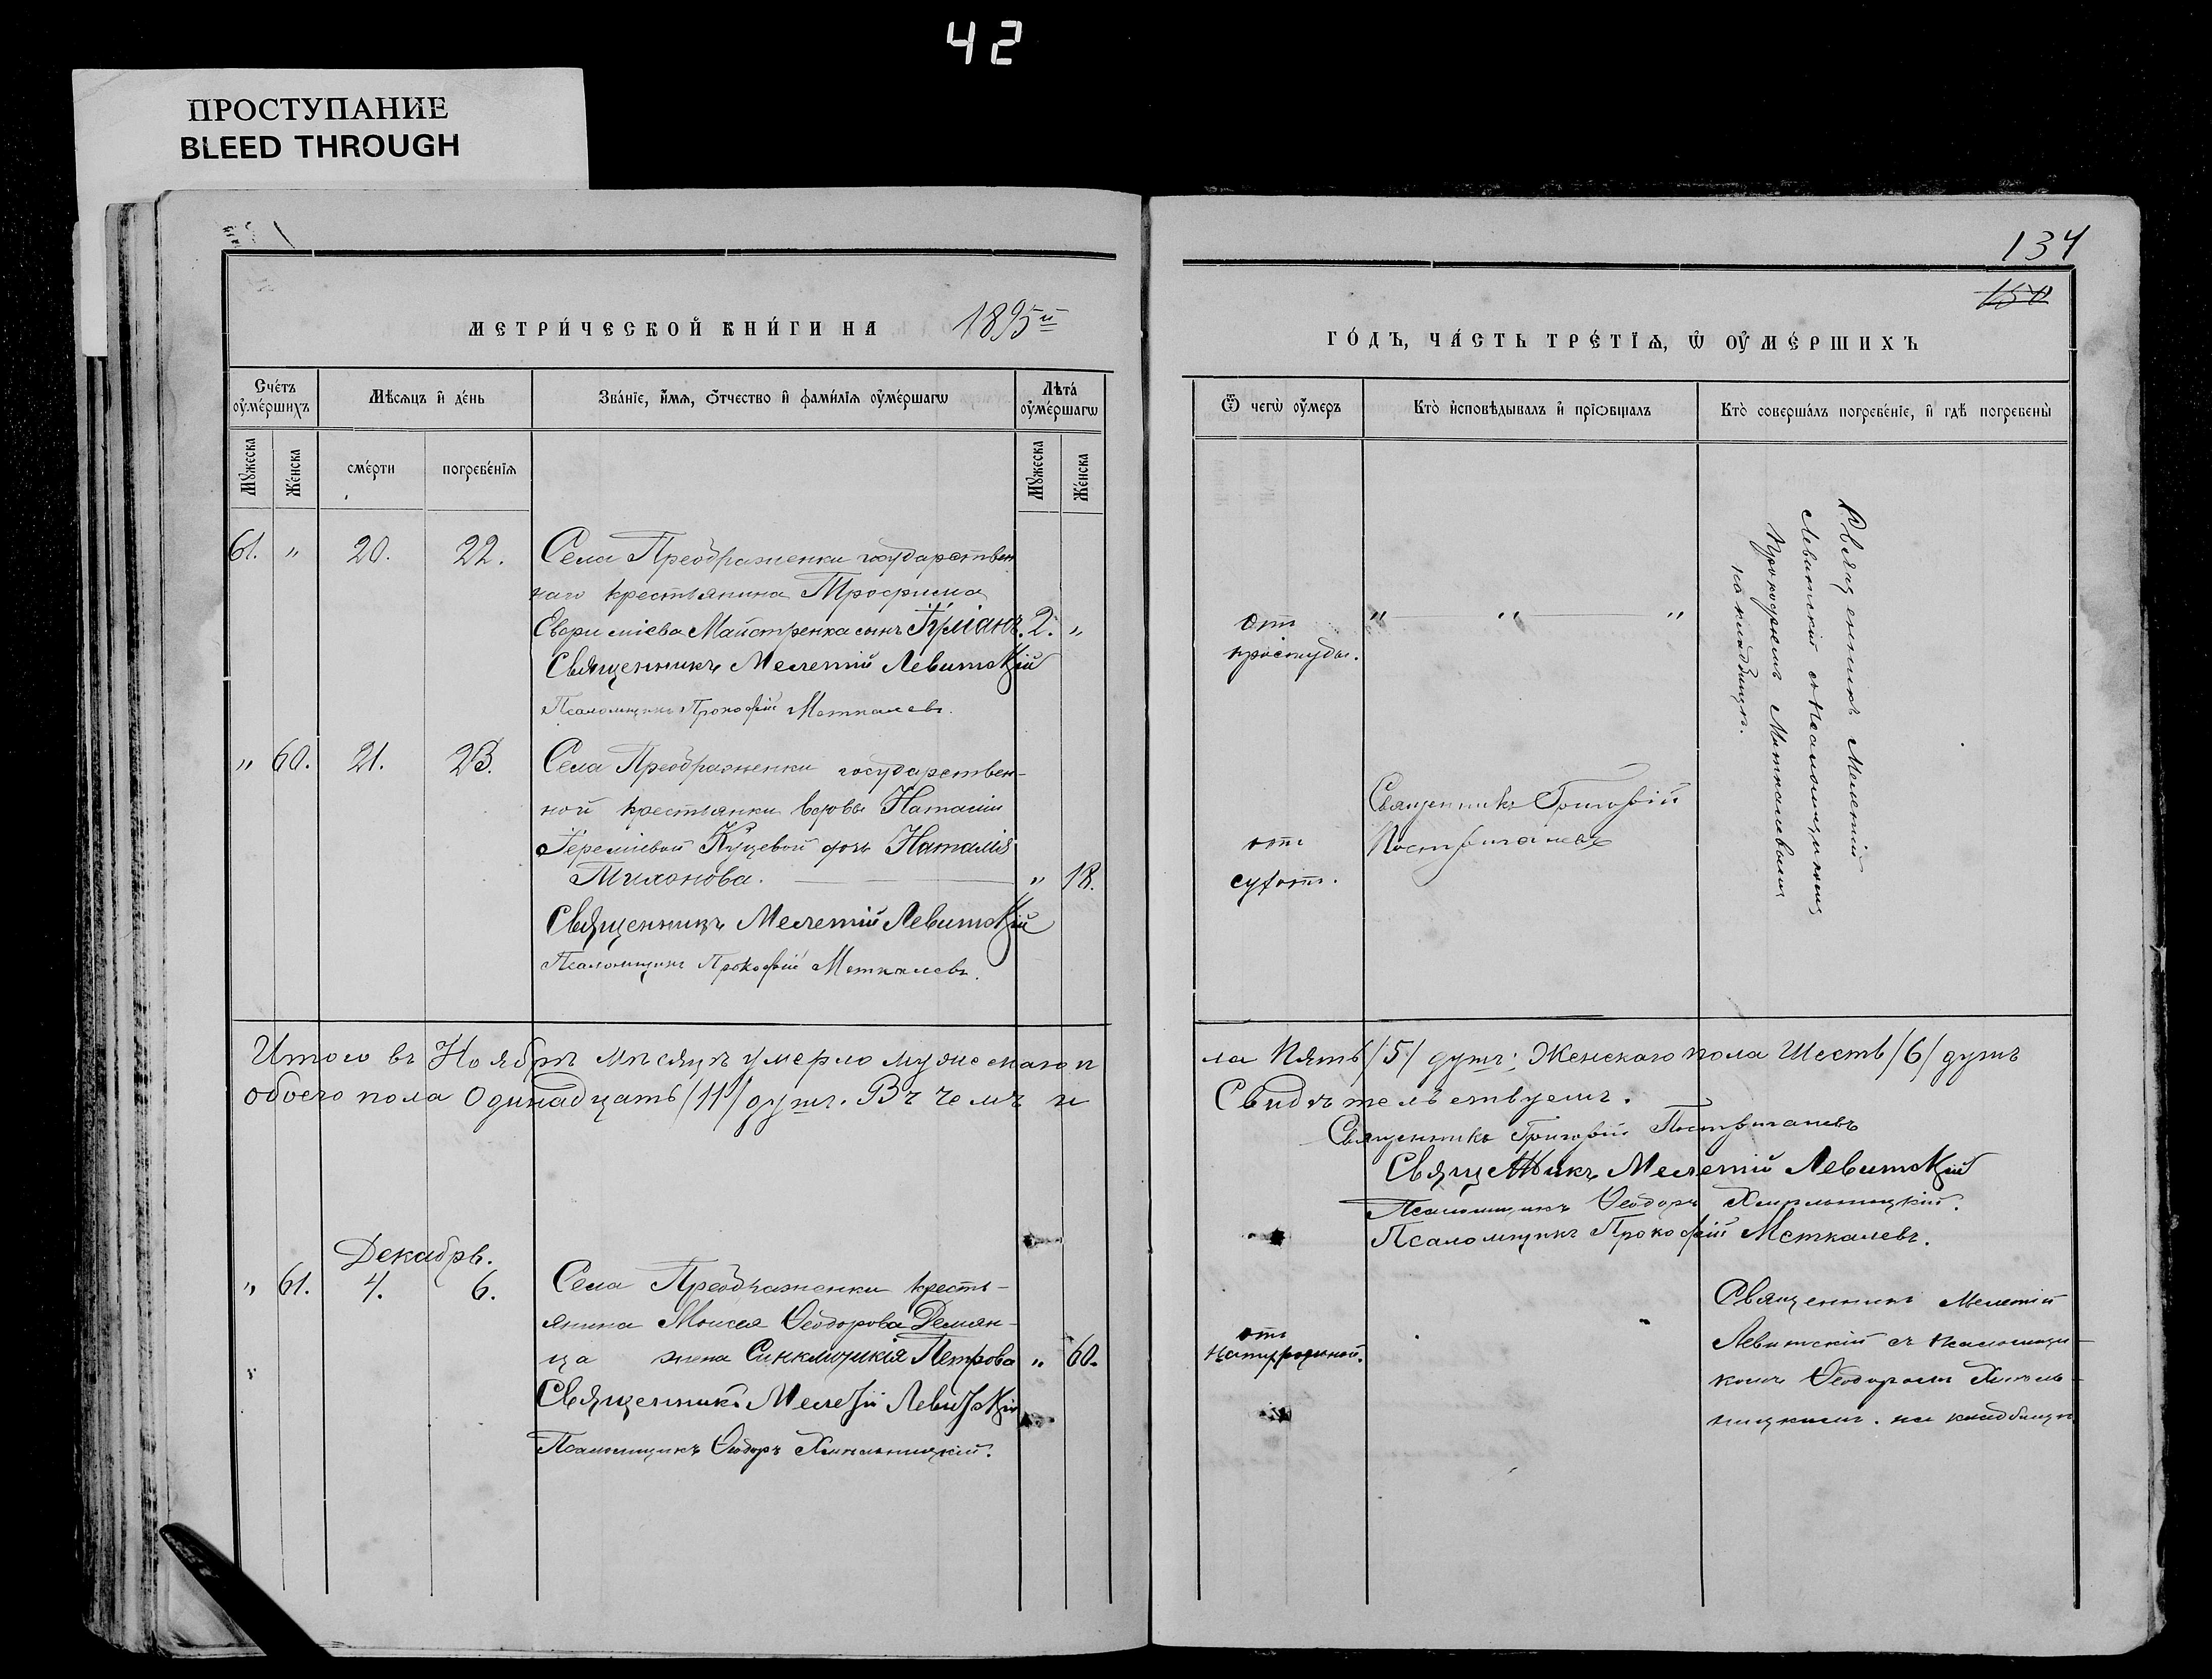 42
ПРОСТУПАНИЕ
BLEED THROUGH
134
МЕТРИ́ЧЕСКОЙ КНИ́ГИ НА 1895й
ГО́ДЪ, ЧА́СТЬ ТРЕ́ТЇѦ, Ѡ҆ ОУ҆МЕ́РШИХЪ
Сче́тъ оу҆ме́ршихъ
Мѣ́сѧцъ и҆ де́нь
Зва́нїе, и҆́мѧ, ѻ҆́тчество и҆ фами́лїѧ оу҆ме́ршагѡ
Лѣта̀ оу҆ме́ршагѡ
Ѿ чегѡ̀ оу҆́меръ
Кто̀ и҆сповѣ́дывалъ и҆ прїѻбща́лъ
Кто̀ соверша́лъ погребе́нїе, и҆ гдѣ̀ погребены̀
Мꙋ́жеска
Же́нска
сме́рти
погребе́нїѧ
Мꙋ́жеска
Же́нска
61. " 20. 22. Села Преображенки государствен
наго крестьянина Трофима
Евфиміева Майстренка сынъ Іуліанъ. 2. "
Священникъ Мелетій Левитскій
Псаломщикъ Прокофій Меткалевъ.
отъ
простуды.
" " "
Священникъ Мелетій
Левитскій съ Псаломщикомъ
Прокофіемъ Меткалевымъ
на кладбищѣ.
" 60. 21. 23. Села Преображенки государствен-
ной крестьянки вдовы Наталіи
Іереміевой Куцевой дочь Наталія
Тихонова. " 18.
Священникъ Мелетій Левитскій
Псаломщикъ Прокофій Меткалевъ.
отъ
Священникъ Григорій
Итого въ Ноябрѣ мѣсяцѣ умерло мужескаго п
ла Пять /5/ душъ; Женскаго пола Шесть /6/ душъ
обоего пола Одинадцать /11/ душъ. Въ чемъ и
Свидѣтельствуемъ.
Священникъ Григорій
Священникъ Мелетій Левитскій
Псаломщикъ Ѳеодоръ Хмѣльницкій.
Псаломщикъ Прокофій Меткалевъ.
Декабрь.
" 61. 4. 6. Села Преображенки кресть-
янина Моисея Ѳеодорова Демян-
ца жена Синклитикія Петрова " 60.
Священникъ Мелетій Левитскій
Псаломщикъ Ѳеодоръ Хмѣльницкій.
отъ
Священникъ Мелетій
Левитскій съ псаломщи-
комъ Ѳеодоромъ Хмѣль-
ницкимъ. на кладбищѣ